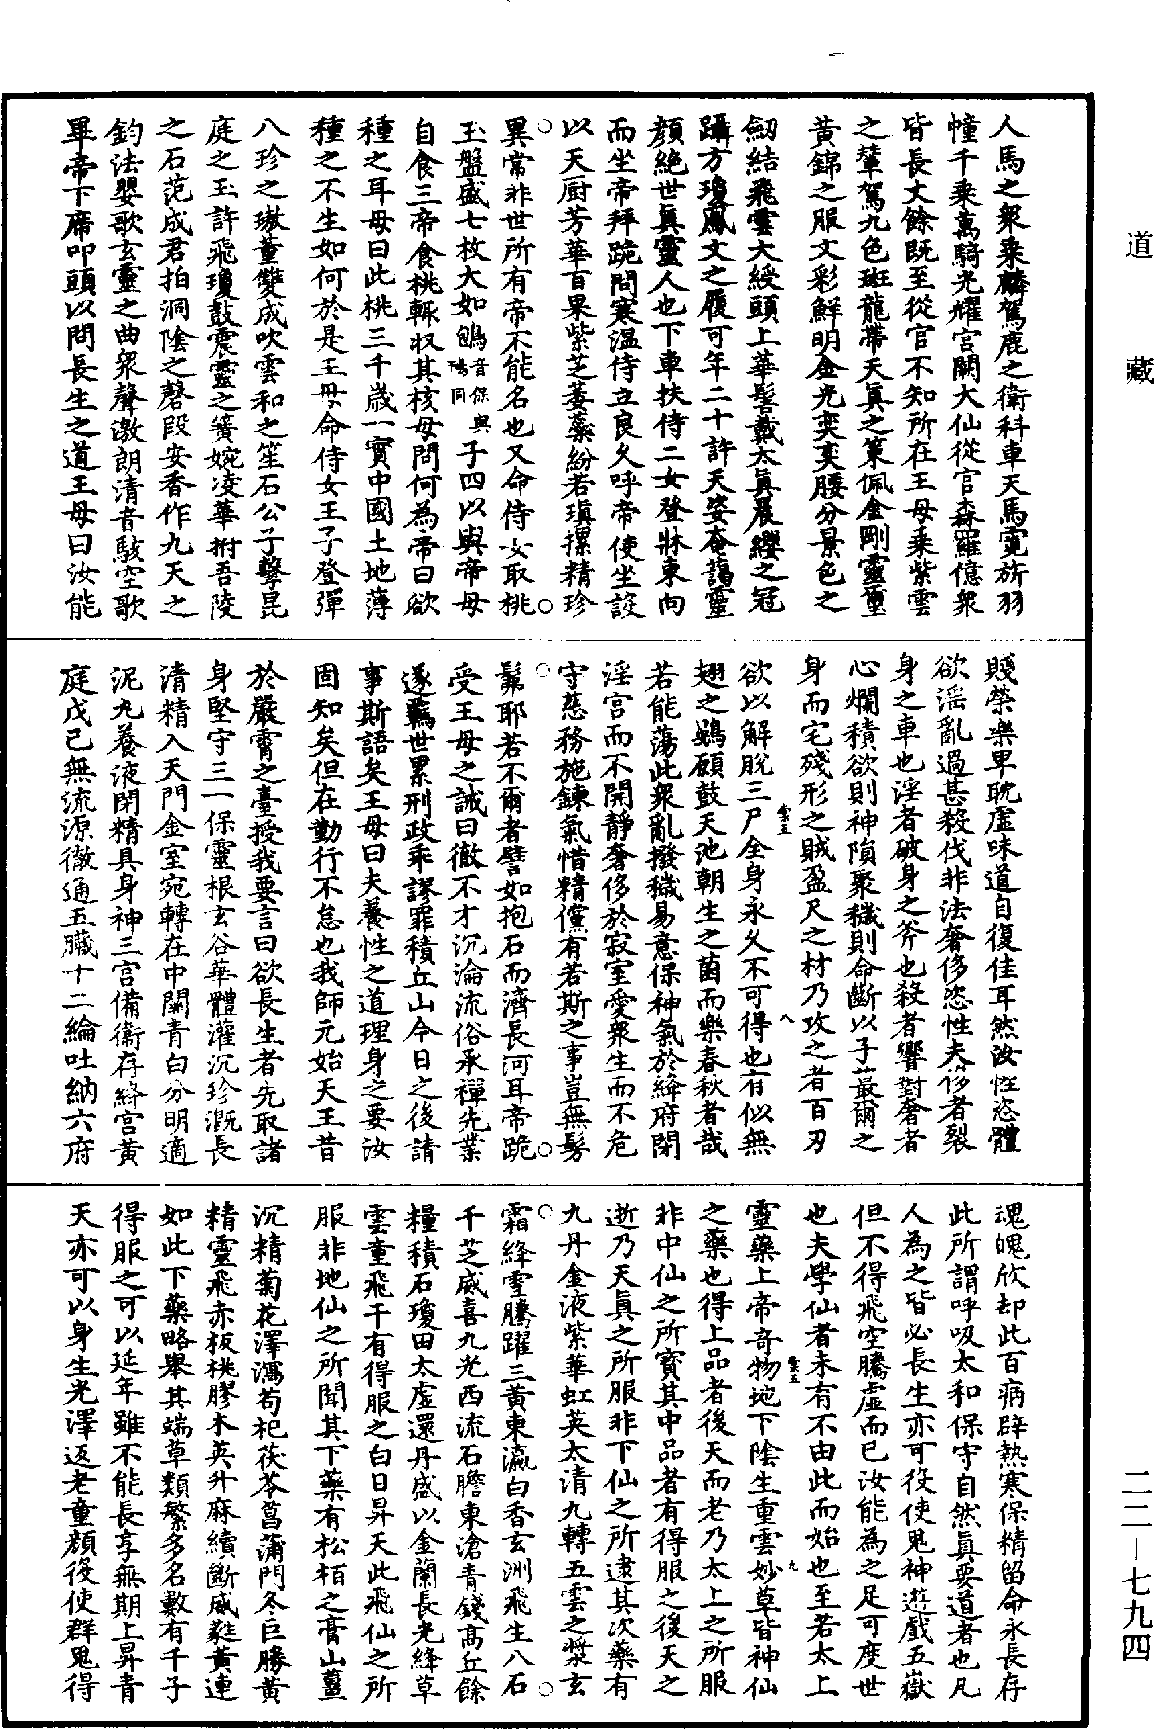 道藏
人馬之衆乗麟駕鹿之衛科車天馬霓旂羽
幢千乗萬騎光耀宫闕大仙從官森羅億衆
皆長丈餘既至從官不知所在王母乗紫雲
之輦駕九色斑龍帶天眞之策佩金剛靈璽
黄錦之服文彩鮮明金光奕奕腰分景色之
劔結飛雲大綬頭上華髻戴太眞晨纓之冠
躡方瓊鳳文之履可年二十許天姿奄藹靈
顔絶世眞靈人也下車扶侍二女登牀東向
而坐帝拜跪問寒温侍立良久呼帝使坐設
以天厨芳華百果紫芝萎蘂紛若瑱摞精珍
異常非世所有帝不能名也又命侍女取桃
玉盤盛七枚大如鴖音保與鴇同子四以與帝母
自食三帝食桃輙収其核母問何為帝曰欲
種之耳母曰此桃三千歳一實中國土地薄
種之不生如何於是王母命侍女王子登彈
八珍之璈董雙成吹雲和之笙石公子擊昆
庭之玉許飛瓊鼓震靈之簧婉凌華拊吾陵
之石范成君拍洞陰之磬段安香作九天之
鈞法嬰歌玄靈之曲衆聲激朗清音駭空歌
畢帝下席叩頭以問長生之道王母曰汝能
賤榮樂卑耽虚味道自復佳耳然汝性恣體
欲淫亂過甚殺伐非法奢侈恣性夫侈者裂
身之車也淫者破身之斧也殺者響對奢者
心爛積欲則神隕聚穢則命斷以子蕞爾之
身而宅殘形之賊盈尺之材乃攻之者百刃
欲以解脱三尸全身永久不可得也有似無
翅之鷃願鼓天池朝生之菌而樂春秋者哉
若能蕩此衆亂撥穢易意保神氣於絳府閉
淫宫而不開靜奢侈於寂室愛衆生而不危
守慈務施鍊氣惜精儻有若斯之事豈無髣
髴耶若不爾者譬如抱石而濟長河耳帝跪
受王母之誡曰徹不才沉淪流俗承禪先業
遂羈世累刑政乖謬罪積丘山今日之後請
事斯語矣王母曰夫養性之道理身之要汝
固知矣但在勤行不怠也我師元始天王昔
於嚴霄之臺授我要言曰欲長生者先取諸
身堅守三一保靈根玄谷華體灌沉珍溉長
清精入天門金室宛轉在中關青白分明適
泥丸養液閉精具身神三宫備衛存絳宫黄
庭戊己無流源徹通五臟十二綸吐納六府
魂魄欣却此百病辟熱寒保精留命永長存
此所謂呼吸太和保守自然眞要道者也凡
人為之皆必長生亦可役使鬼神遊戲五嶽
但不得飛空騰虚而已汝能為之足可度世
也夫學仙者未有不由此而始也至若太上
靈藥上帝奇物地下陰生重雲妙草皆神仙
之藥也得上品者後天而老乃太上之所服
非中仙之所寳其中品者有得服之後天之
逝乃天眞之所服非下仙之所逮其次藥有
九丹金液紫華虹英太清九轉五雲之漿玄
霜絳雪騰躍三黄東瀛白香玄洲飛生八石
千芝威喜九光西流石膽東滄青錢髙丘餘
糧積石瓊田太虚還丹盛以金蘭長光絳草
雲童飛干有得服之白日昇天此飛仙之所
服非地仙之所聞其下藥有松栢之膏山薑
沉精菊花澤瀉苟杞茯苓菖蒲門冬巨勝黄
精靈飛赤板桃膠木英升麻續斷威蕤黄連
如此下藥略舉其端草類繁多名數有千子
得服之可以延年雖不能長享無期上昇青
天亦可以身生光澤返老童顔役使群鬼得
二二—七九四